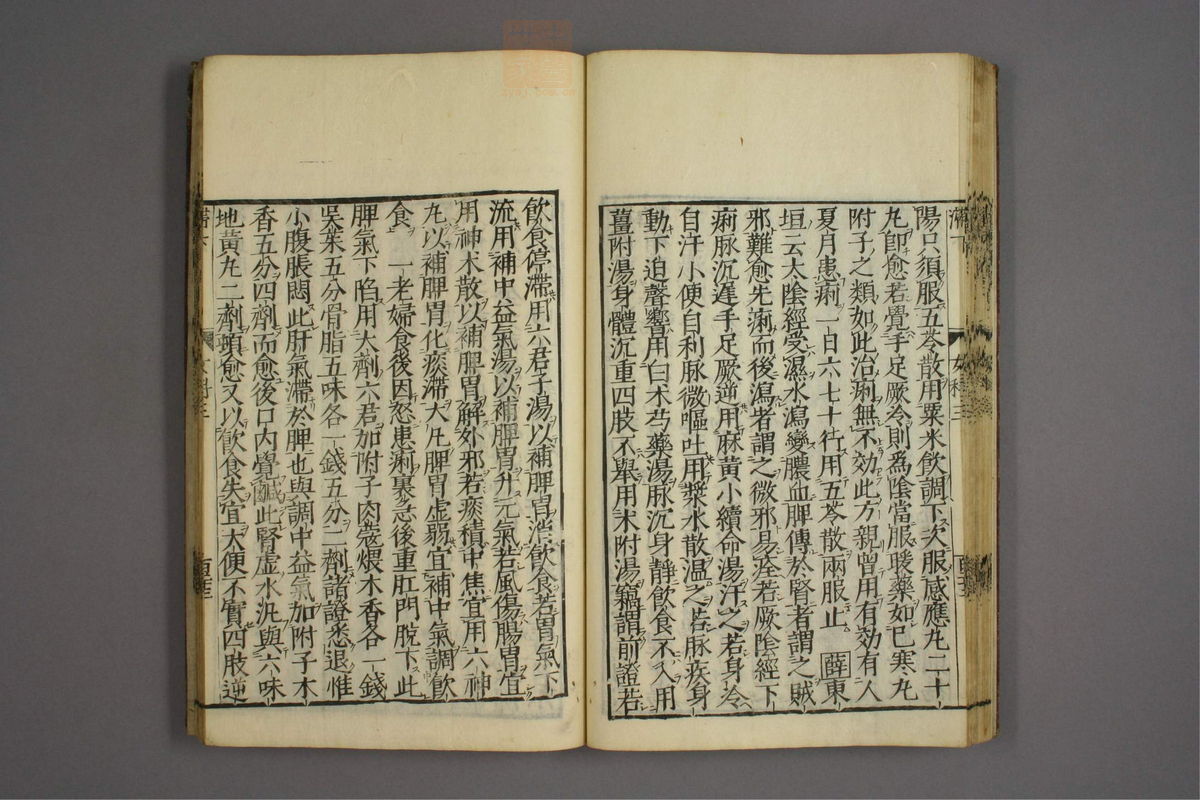 陽只須服五苓散用粟米飲調下次服感應丸二十
丸卽愈若覺手足厥冷則爲陰當服暖藥如已寒丸
附子之類如此治痢無不効此方親曾用有効有人
夏月患痢一日六七十行用五苓散兩服止 薛東
垣云太陰經受濕水瀉變膿血脾傳於腎者謂之賊
邪難愈先痢而後瀉者謂之微邪易痊若厥陰經下
痢脉沉遲手足厥逆用麻黃小續命湯汗之若身冷
自汗小便自利脉微嘔吐用漿水散溫之若脉疾身
動下迫聲響用白术芍藥湯脉沉身靜飲食不入用
薑附湯身體沉重四肢不舉用术附湯竊謂前證若
女科三
飲食停滯用六君子湯以補脾胃消飲食若胃氣下
流用補中益氣湯以補脾胃升元氣若風傷腸胃宜
用神术散以補脾胃解外邪若痰積中焦宜用六神
丸以補脾胃化痰滯大凡脾胃虛弱宜補中氣調飲
食 一老婦食後因怒患痢裏急後重肛門脫下此
脾氣下陷用大劑六君加附子肉蔻煨木香各一錢
吳茱五分骨脂五味各一錢五分二劑諸證悉退惟
小腹脹悶此肝氣滯於脾也與調中益氣加附子木
香五分四劑而愈後口內覺鹹此腎虛水汎與六味
地黃丸二劑頓愈又以飲食失宜大便不實四肢逆